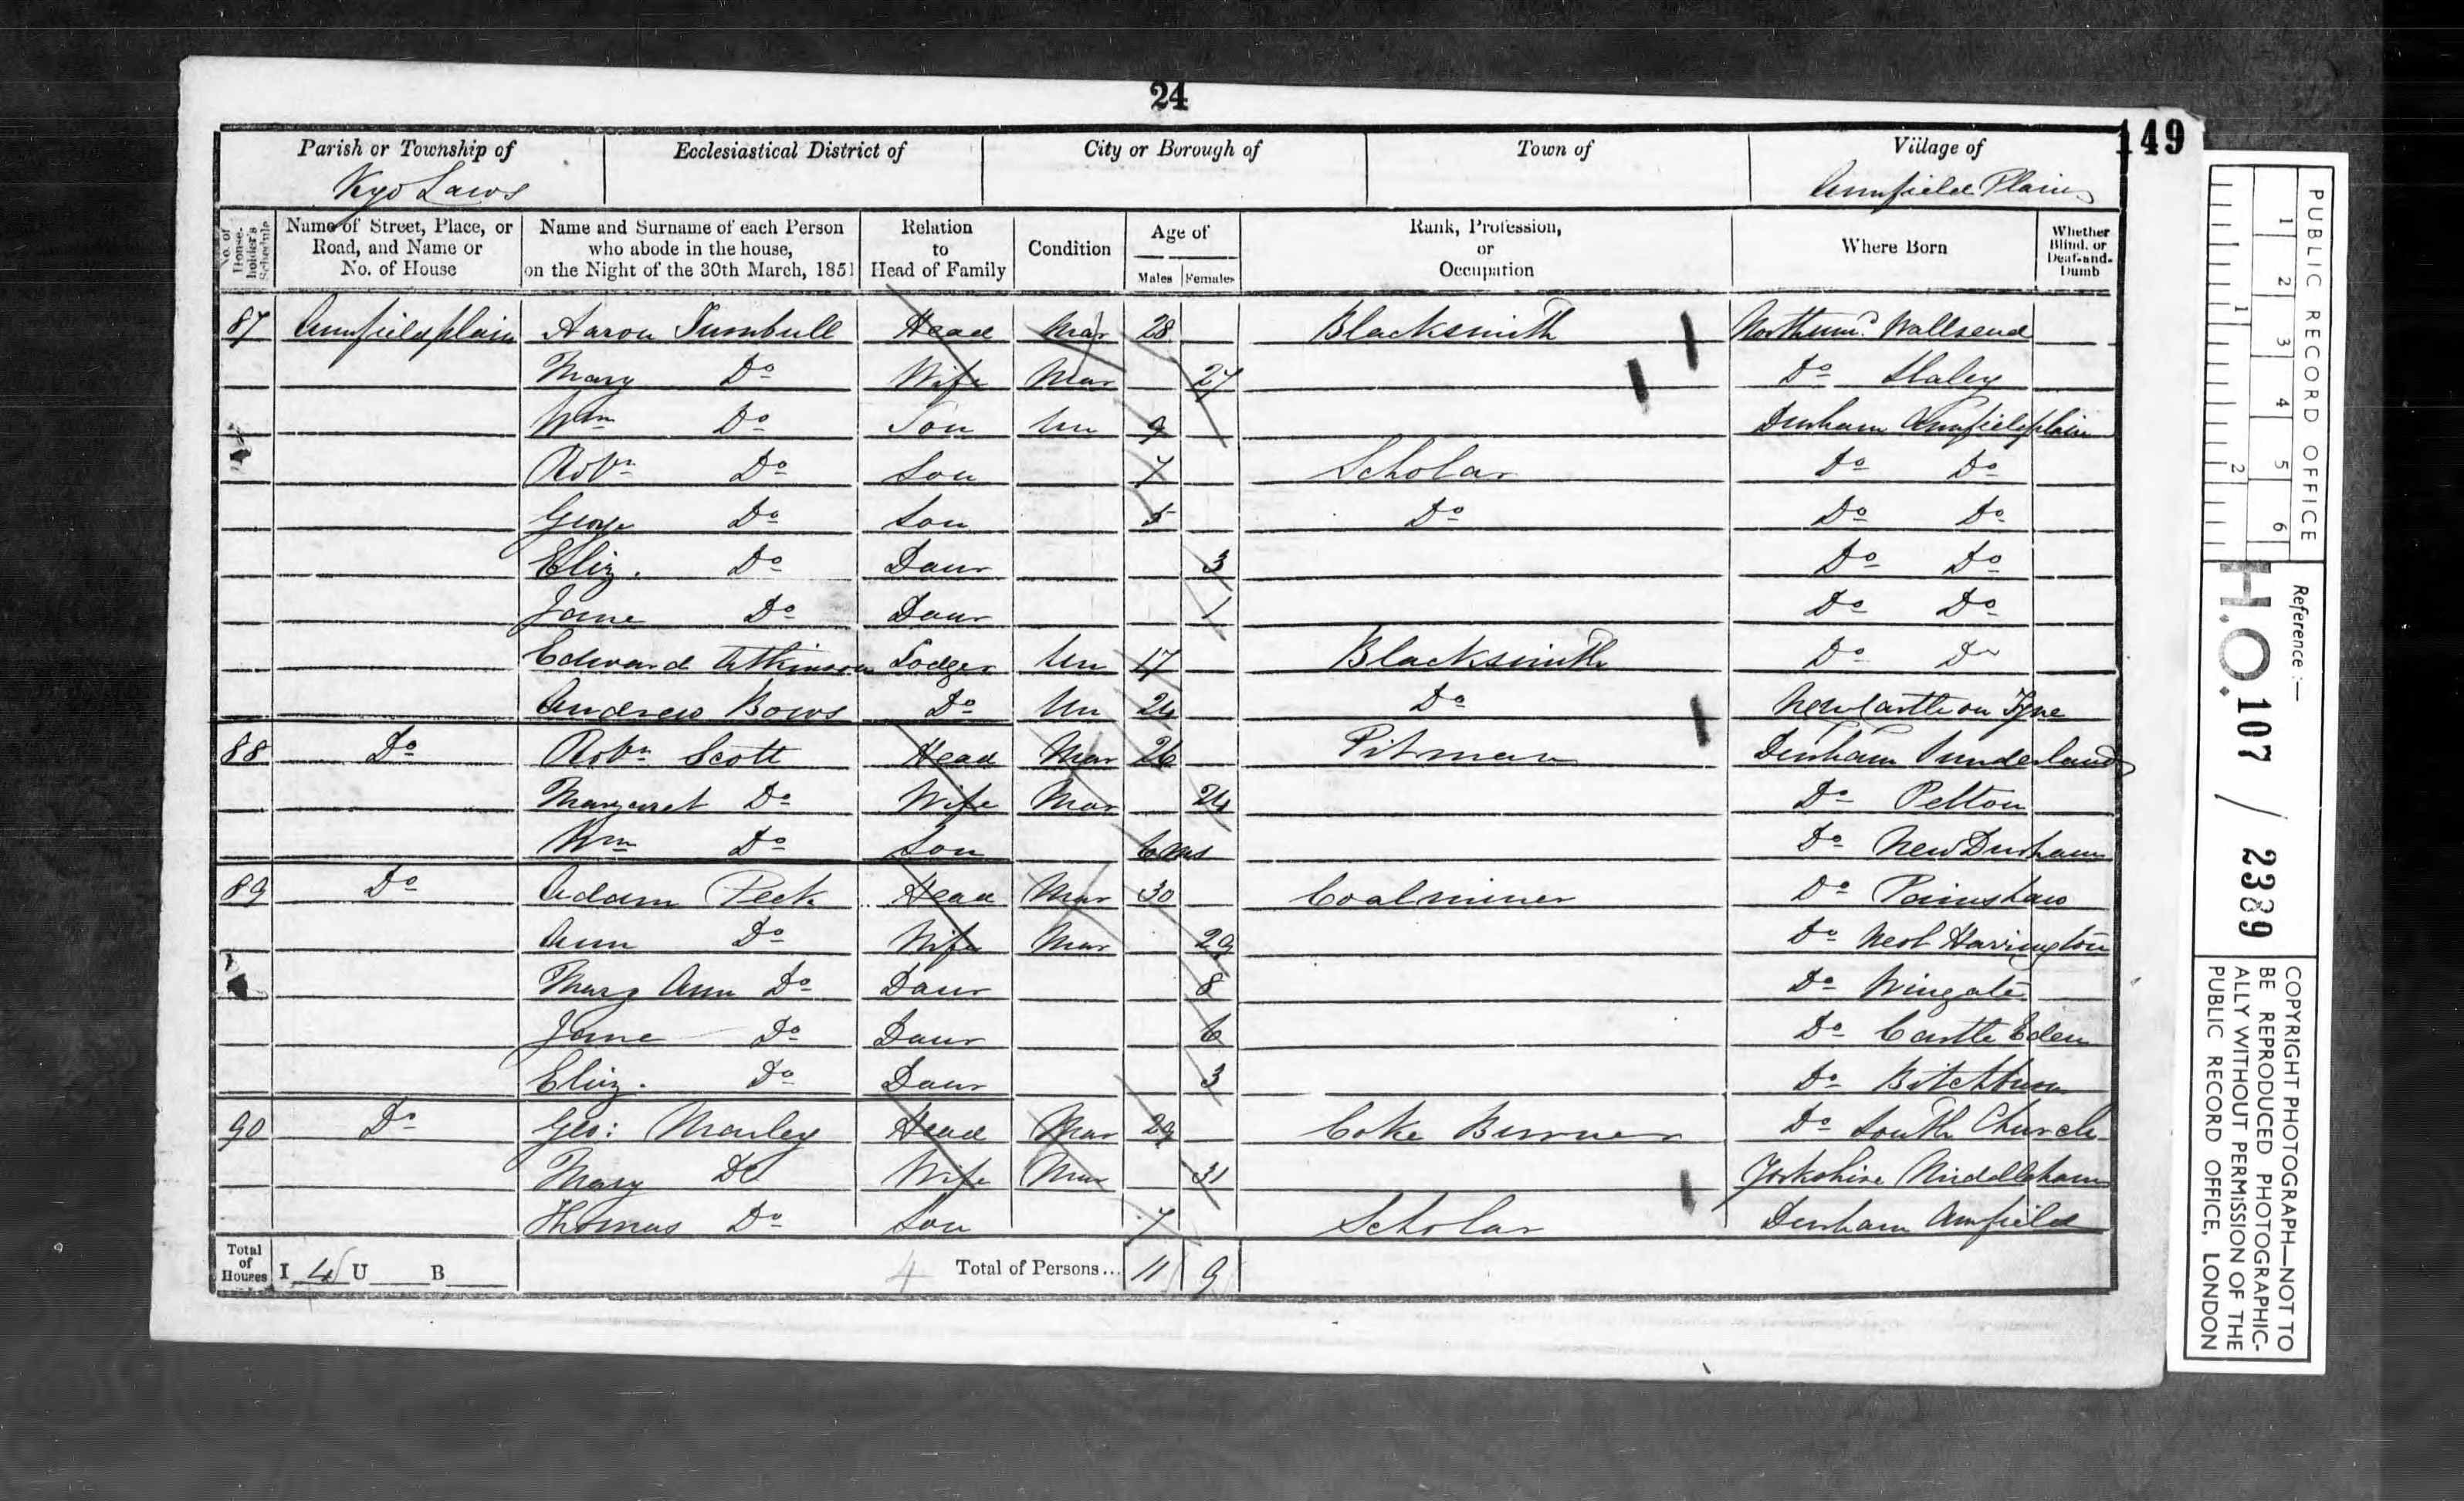 24
149
Parish or Township of
Ecclesiastical District of
City or Borough of
Town of
Village of
Kyo Laws
Annfield Plain
No. of House-holder's Schedule
Name of Street, Place, or Road, and Name or No. of House
Name and Surname of each Person who abode in the house, on the Night of the 30th March, 1851
Relation to Head of Family
Condition
Age of
Males
Females
Rank, Profession, or Occupation
Where Born
Whether Blind, or Deaf-and-Dumb
87 Annfieldplain Aaron Turnbull Head Mar 28 Blacksmith Northumd. Wallsend
Mary Do Wife Mar 27 Do Slaley
Wm Do Son Un 9 Durham Annfieldplain
Robn Do Son 7 Scholar Do Do
George Do Son 5 Do Do Do
Eliz. Do Daur 3 Do Do
Jane Do Daur 1 Do Do
Edward Atkinson Lodger Un 17 Blacksmith Do Do
Andrew Bows Do Un 24 Do Newcastle on Tyne
88 Do Robn Scott Head Mar 26 Pitman Durham Sunderland
Margaret Do Wife Mar 24 Do Pelton
Wm Do Son 6 Do New Durham
89 Do Adam Peek Head Mar 30 Coalminer Do Painshaw
Ann Do Wife Mar 29 Do West Harrington
Mary Ann Do Daur 8 Do Wingate
Jane Do Daur 6 Do Castle Eden
Eliz. Do Daur 3 Do Bitchburn
90 Do Geo: Marley Head Mar 29 Coke Burner Do South Church
Mary Do Wife Mar 31 Yorkshire Middleham
Thomas Do Son 7 Scholar Durham Annfield
Total of Houses I 4 U B
4 Total of Persons... 11 9
PUBLIC RECORD OFFICE
1 2 3 4 5 6
1 2
Reference :—
H.O. 107 / 2389
COPYRIGHT PHOTOGRAPH—NOT TO
BE REPRODUCED PHOTOGRAPHIC-
ALLY WITHOUT PERMISSION OF THE
PUBLIC RECORD OFFICE, LONDON